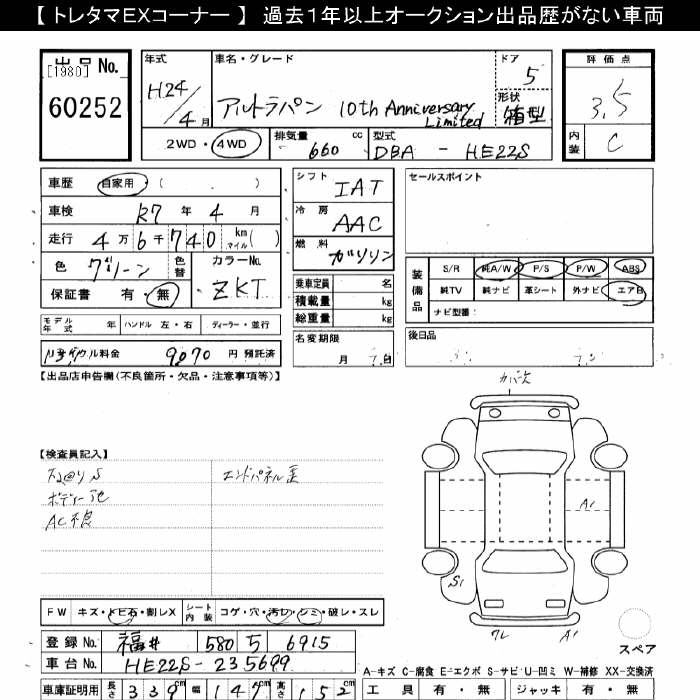 【 トレタマEXコーナー 】 過去1年以上オークション出品歴がない車両
出品 No.
[1980]
60252
年式
H24/4月
車名・グレード
アルトラパン 10th Anniversary Limited
ドア
5
形状
箱型
評価点
3.5
内装
C
2WD・4WD
排気量 660 cc
型式 DBA - HE22S
車歴 自家用・( )
車検 R7 年 4 月
走行 4万6千740 km マイル( )
色 グリーン 色替
カラーNo. ZKT
保証書 有・無
シフト IAT
冷房 AAC
燃料 ガソリン
乗車定員 名
積載量 kg
総重量 kg
セールスポイント
装備品
S/R 純A/W P/S P/W ABS
純TV 純ナビ 革シート 外ナビ エアB
ナビ型番:
モデル年式 年 ハンドル 左・右 ディーラー・並行
リサイクル料金 9070 円 預託済
名変期限 月 日
後日品
【出品店申告欄(不良箇所・欠品・注意事項等)】
【検査員記入】
エンドパネル歪
AC不良
カバー欠
A1
S1
ワレ A1
スペア
FW キズ・トビ石・割レX シート内装 コゲ・穴・汚レ・シミ・破レ・スレ
登録No. 福井 580 う 6915
車台No. HE22S-235699
A-キズ C-腐食 E-エクボ S-サビ U-凹ミ W-補修 XX-交換済
車庫証明用 長さ 339cm 幅 147cm 高さ 152cm
工具 有・無 ジャッキ 有・無